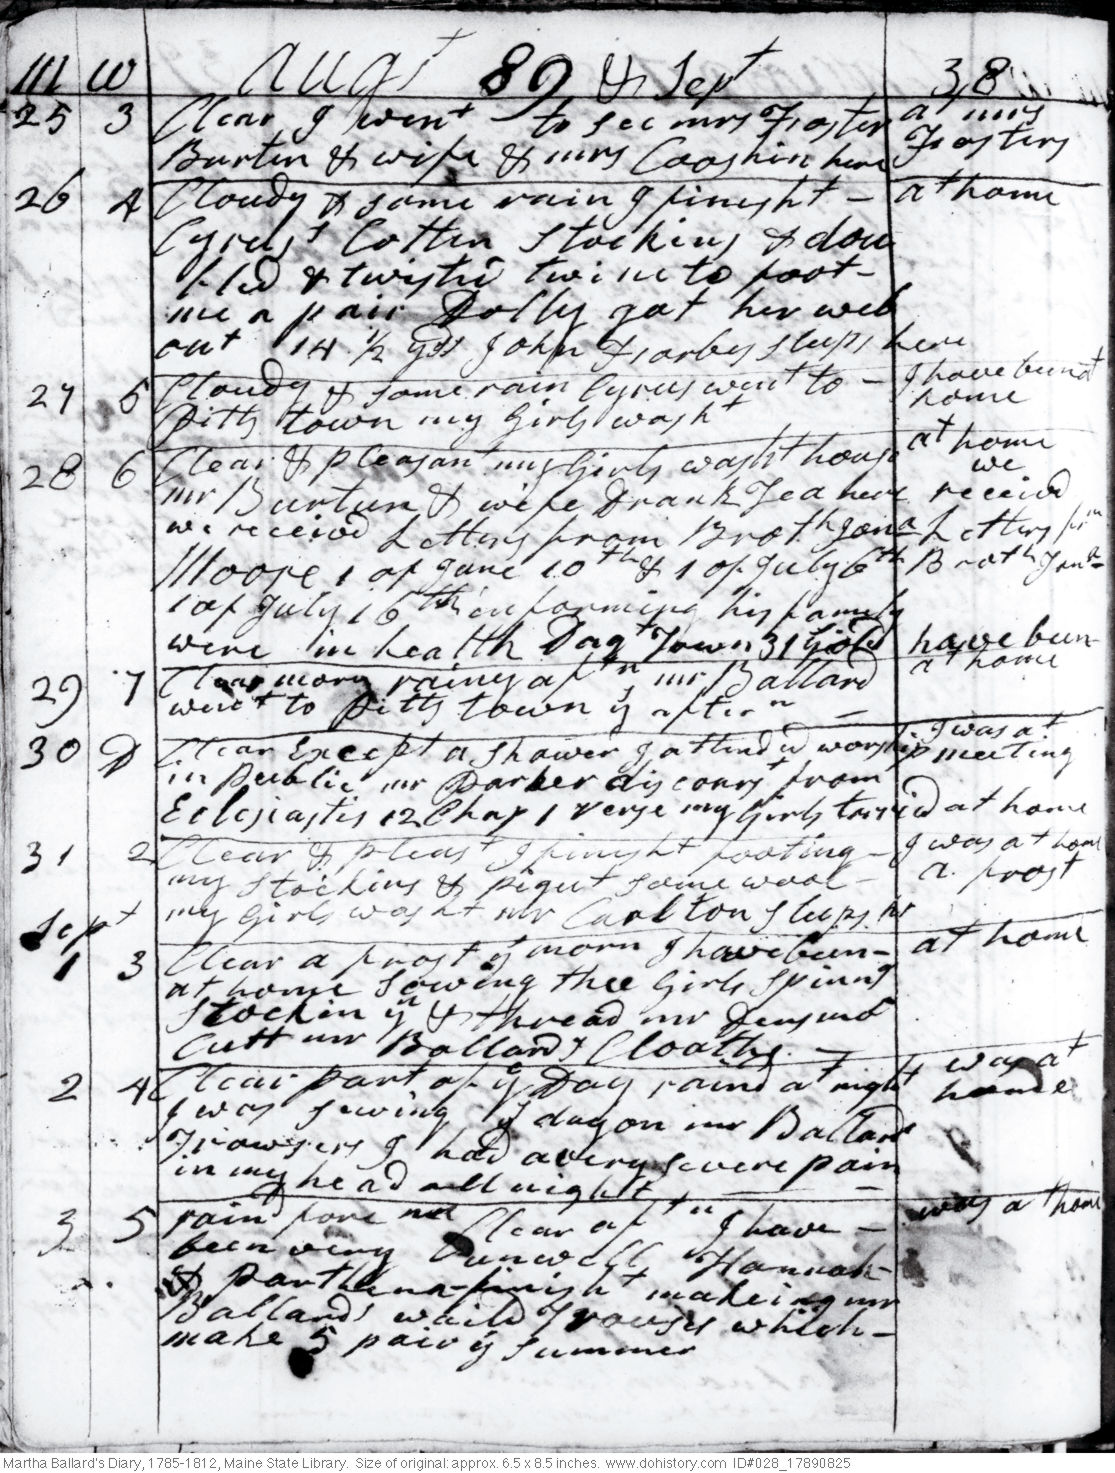 M W Augt 89 & Sept 38
25 3 Clear I went to see mrs Foster at mrs
Burtun & wife & mrs Cooshin here Fosters
26 4 Cloudy & some rain I finisht - at home
Cyrus's Cotten Stockins & dou
bled & twisted twine to foot -
me a pair Dolly got her web
out 14 1/2 yds John sleeps here
27 5 Cloudy & some rain Cyrus went to - I have been at
Pitts town my Girls washt home
28 6 Clear & pleasant my Girls washt house at home
mr Burtun & wife Drank Tea here we receivd
we receivd Letters from Broth Jona Letters frm
Moore 1 of June 10th & 1 of July 6th Broth Jona
1 of July 16th informing his family
were in health have been
29 7 Clear morn rainy aftn mr Ballard at home
went to Pitts town ye aftern
30 D Clear Except a shower I attended worship I was at
in publick mr Parker discourst from meeting
Eclesiastis 12 Chap 1 verse my Girls tarried at home
31 2 Clear & pleast I finisht footing - I was at home
my stockins & pigut some wool - a frost
my Girls washt mr Carlton sleeps hr
Sept
1 3 Clear a frost ye morn I have been - at home
at home Sewing thee Girls spinng
Stockin yn & thread mr Densmo
Cutt mr Ballards Cloaths.
2 4 Clear part of ye Day raind at night was at
I was sewing ye day on mr Ballards home
Trowsers I had a very severe pain
in my head all night
3 5 raind fore noon Clear aftn I have - was at home
been very unwell Hannah
& Parthena finisht makeing mr
Ballards Trowses which -
make 5 pair ye summer
Martha Ballard's Diary, 1785-1812, Maine State Library. Size of original: approx. 6.5 x 8.5 inches. www.dohistory.com ID#028_17890825